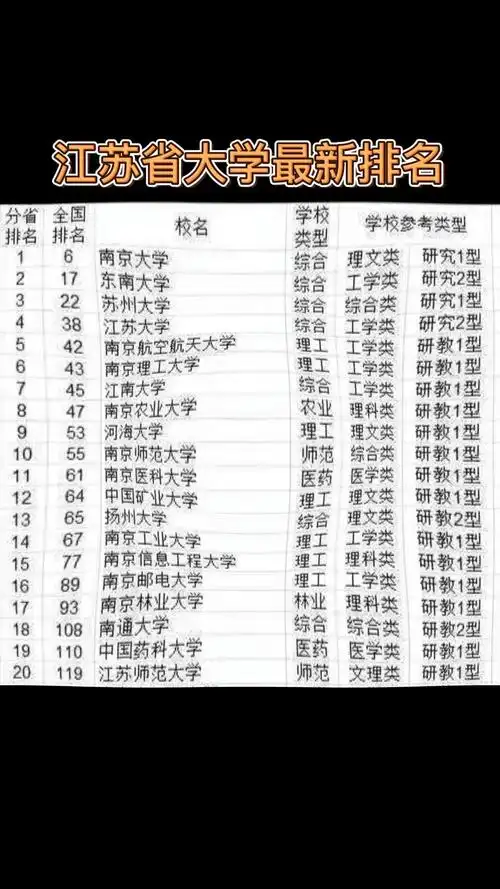 江苏省大学最新排名
分省排名 全国排名 校名 学校类型 学校参考类型
1 6 南京大学 综合 理文类 研究1型
2 17 东南大学 综合 工学类 研究2型
3 22 苏州大学 综合 综合类 研究1型
4 38 江苏大学 综合 工学类 研究2型
5 42 南京航空航天大学 理工 工学类 研教1型
6 43 南京理工大学 理工 工学类 研教1型
7 45 江南大学 综合 工学类 研教1型
8 47 南京农业大学 农业 理科类 研教1型
9 53 河海大学 理工 理文类 研教1型
10 55 南京师范大学 师范 综合类 研教1型
11 61 南京医科大学 医药 医学类 研教1型
12 64 中国矿业大学 理工 理文类 研教1型
13 65 扬州大学 综合 理文类 研教2型
14 67 南京工业大学 理工 工学类 研教1型
15 77 南京信息工程大学 理工 理科类 研教1型
16 89 南京邮电大学 理工 工学类 研教1型
17 93 南京林业大学 林业 理科类 研教1型
18 108 南通大学 综合 综合类 研教2型
19 110 中国药科大学 医药 医学类 研教1型
20 119 江苏师范大学 师范 文理类 研教1型